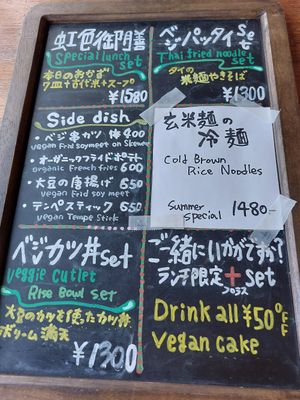 虹色御膳
Special lunch set
本日のおかず
7皿+古代米+スープ
¥1580
ベジパッタイset
Thai fried noodle set
タイの
米麺やきそば
¥1300
Side dish
・ベジ串カツ 1本400
vegan Frid soymeet on Skewer
・オーガニックフライドポテト
organic French fries 600
・大豆の唐揚げ 650
vegan Frid soy meat
・テンペスティック 650
vegan Tempe Stick
玄米麺の
冷麺
Cold Brown
Rice Noodles
Summer
special 1480-
ベジカツ丼set
Veggie cutlet
Rise Bowl set
大豆のカツを使ったカツ丼
ボリューム満天
¥1300
ご一緒にいかがですか?
ランチ限定+set
プラス
Drink all ¥50 OFF
vegan cake